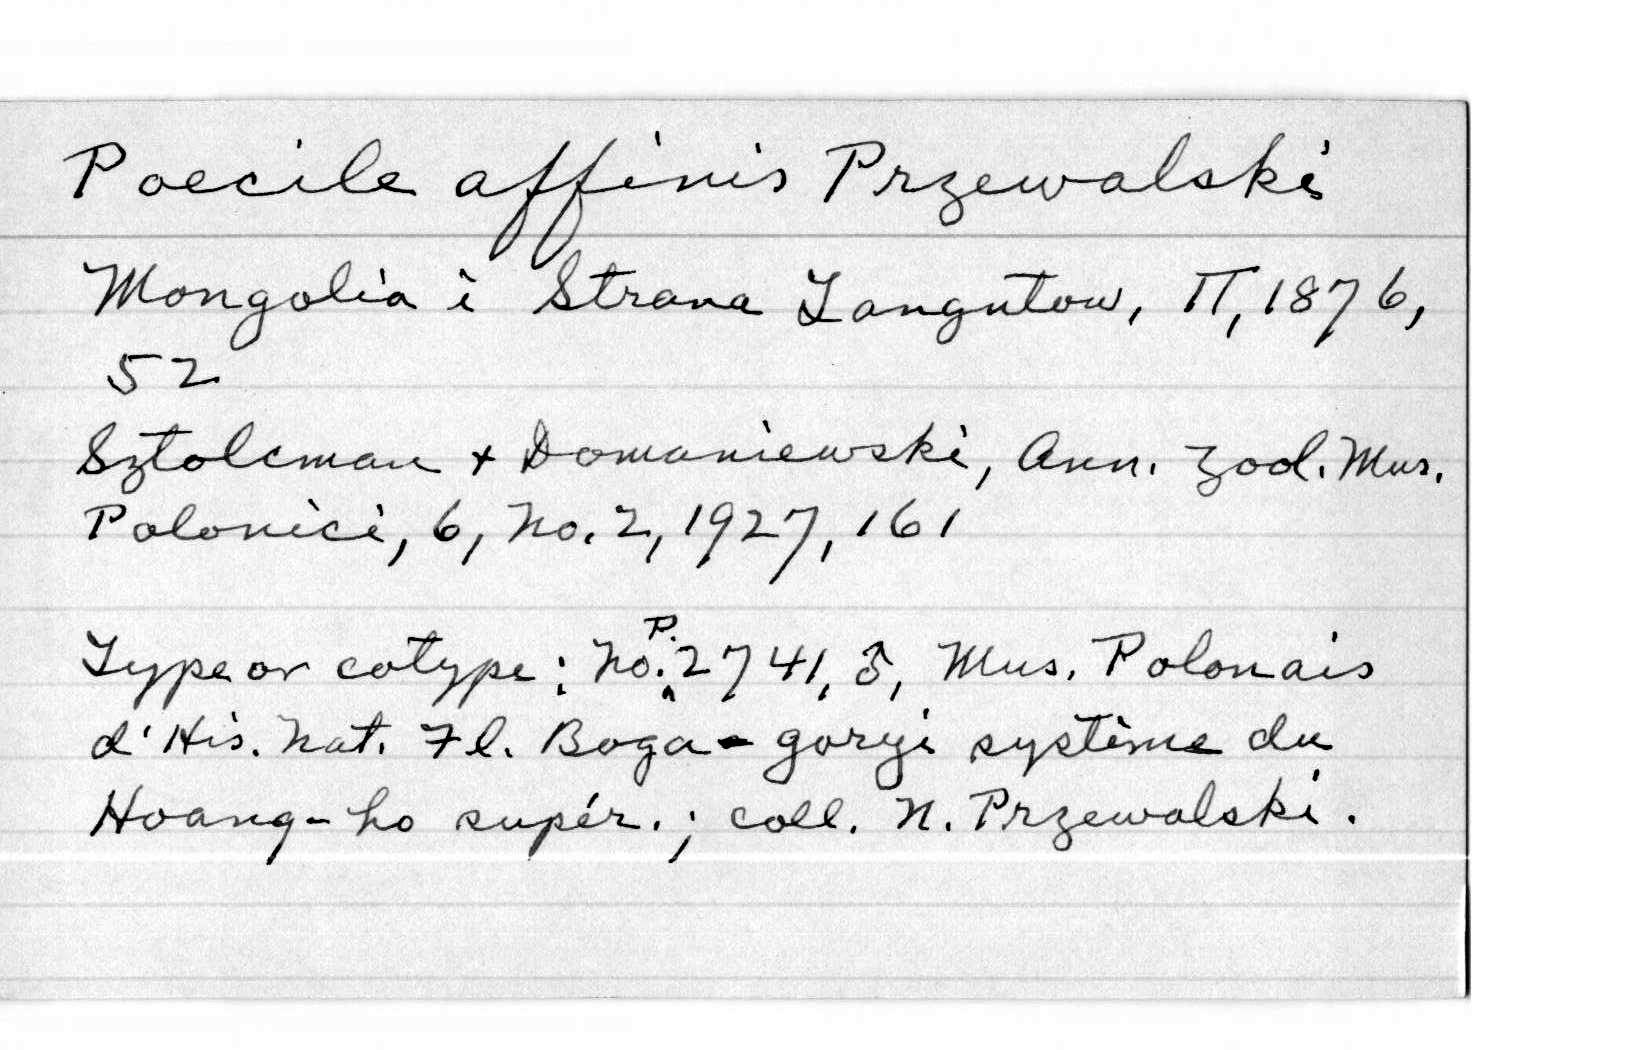 Poecile affinis Przewalski
Mongolia i Strana Tangutow, II, 1876,
52
Sztolcman + Domaniewski, Ann. Zool. Mus.
Polonici, 6, No. 2, 1927, 161
Type or cotype: No. P. 2741, ♂, Mus. Polonais
d'His. Nat. Fl. Boga-goryi système du
Hoang-ho supér.; coll. N. Przewalski.